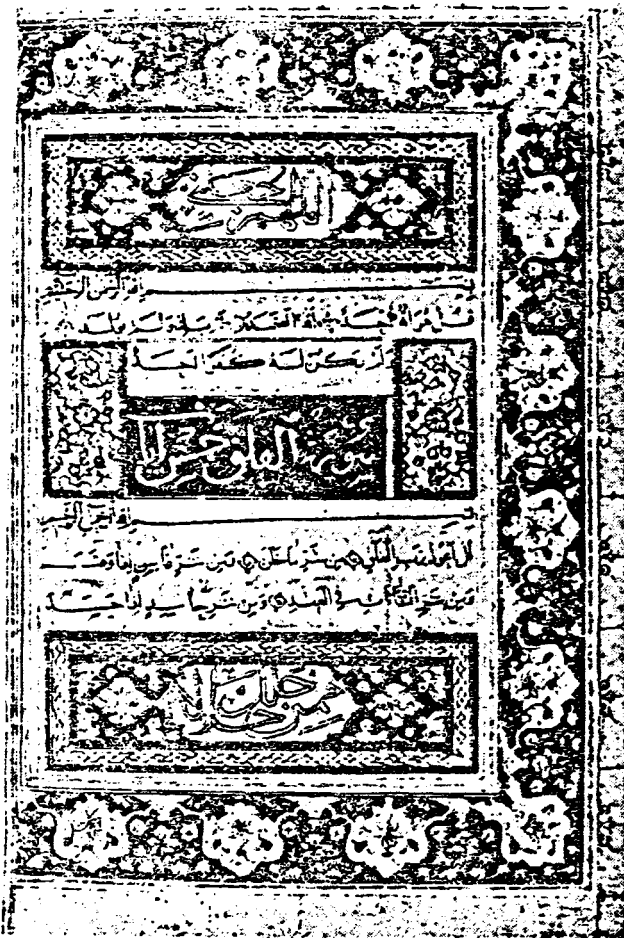 بسم الله الرحمن الرحيم
قل هو الله احد الله الصمد لم يلد ولم يولد
ولم يكن له كفوا احد
سورة الفلق خمس آيات
بسم الله الرحمن الرحيم
قل اعوذ برب الفلق من شر ما خلق ومن شر غاسق اذا وقب
ومن شر النفاثات في العقد ومن شر حاسد اذا حسد